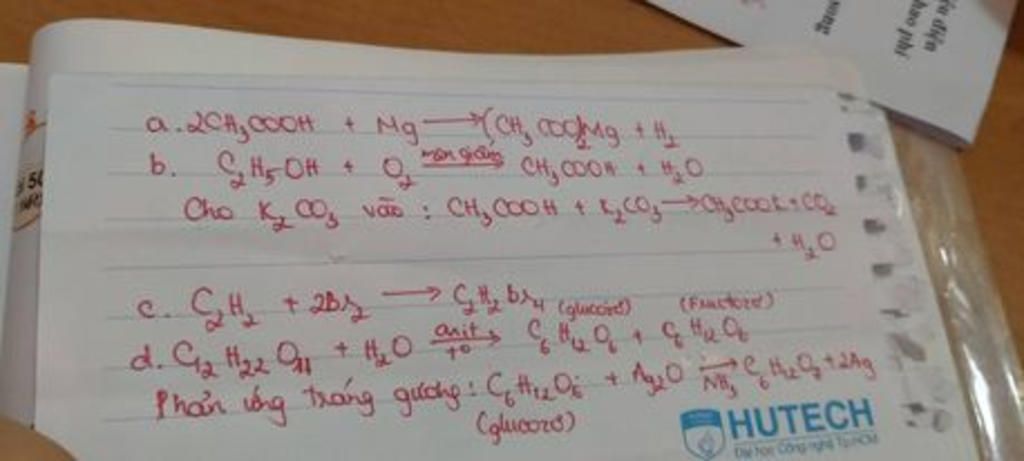 a. 2CH₃COOH + Mg ⟶ (CH₃COO)₂Mg + H₂
b. C₂H₅OH + O₂ men giấm ⟶ CH₃COOH + H₂O
Cho K₂CO₃ vào : CH₃COOH + K₂CO₃ ⟶ CH₃COOK + CO₂
+ H₂O
c. C₂H₂ + 2Br₂ ⟶ C₂H₂Br₄
(glucozơ) (Fructozơ)
d. C₁₂H₂₂O₁₁ + H₂O axit t° ⟶ C₆H₁₂O₆ + C₆H₁₂O₆
Phản ứng tráng gương : C₆H₁₂O₆ + Ag₂O NH₃ ⟶ C₆H₁₂O₇ + 2Ag
(glucozơ)
HUTECH
Đại học Công nghệ Tp.HCM